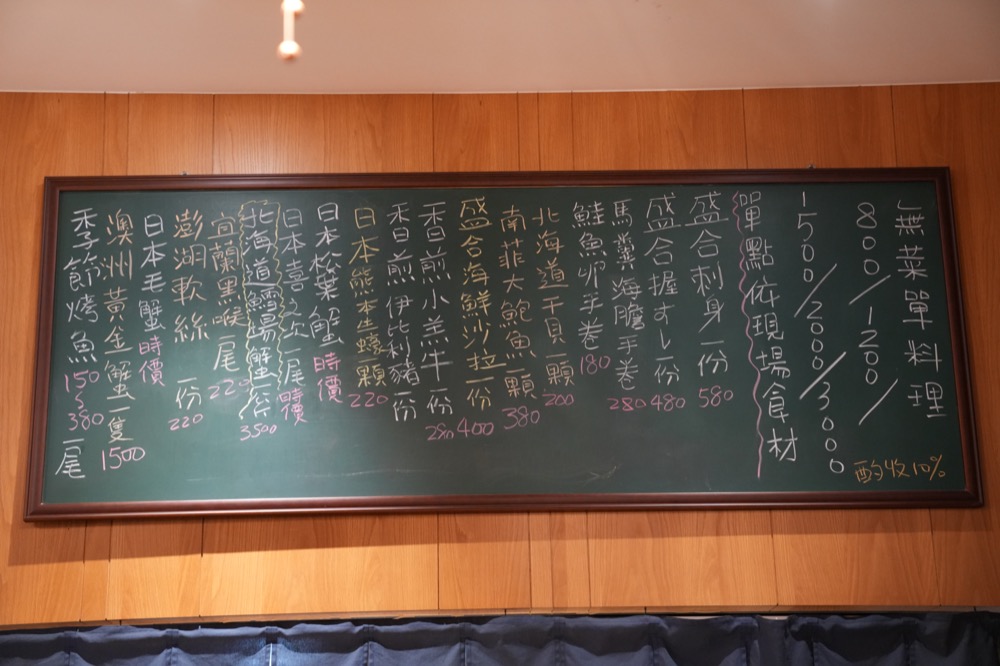 無菜單料理
800/1200/
1500/2000/3000
酌收10%
單點依現場食材
盛合刺身一份 580
盛合握すし一份 480
馬糞海膽手卷 280
鮭魚卵手卷 180
北海道干貝一顆 200
南菲大鮑魚一顆 380
盛合海鮮沙拉一份 400
香煎小羔牛一份 280
香煎伊比利豬一份
日本熊本生蠔一顆 220
日本松葉蟹 時價
日本喜之次一尾 時價
北海道鱈場蟹一份 3500
宜蘭黑喉一尾 220
澎湖軟絲一份 220
日本毛蟹 時價
澳洲黃金蟹一隻 1500
季節烤魚 150~380 一尾